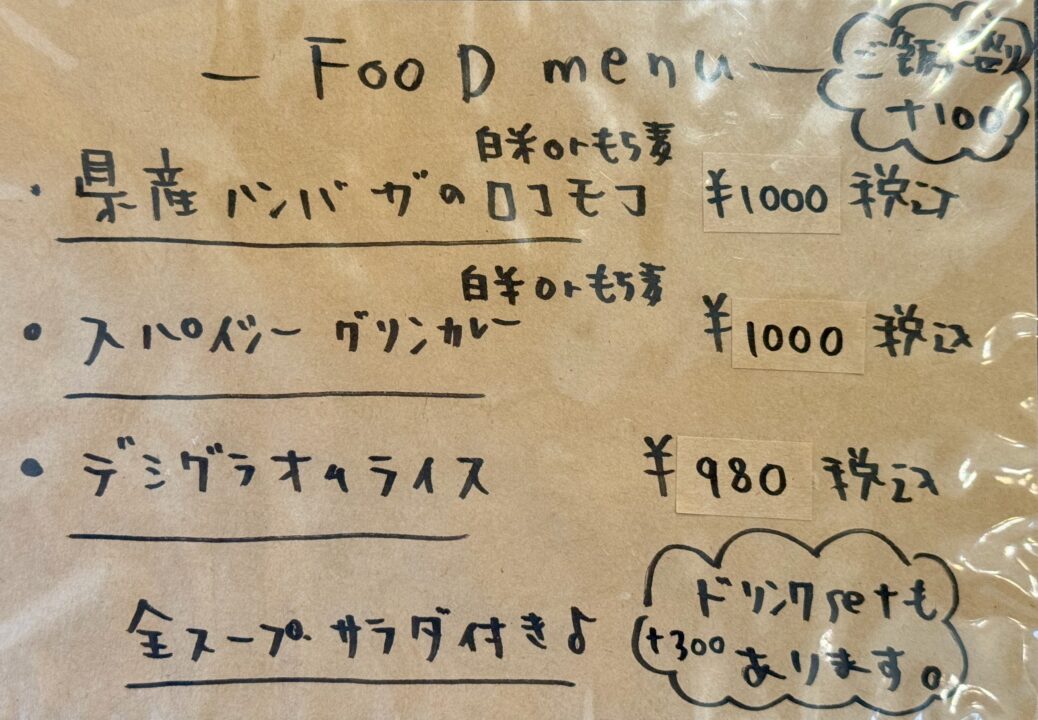 — FooD menu —
ご飯大盛り
+100
白米orもち麦
・県産ハンバーグのロコモコ ¥1000 税込
白米orもち麦
・スパイシーグリンカレー ¥1000 税込
・デミグラオムライス ¥980 税込
全スープ、サラダ付き♪
ドリンクsetも
(+300 あります。